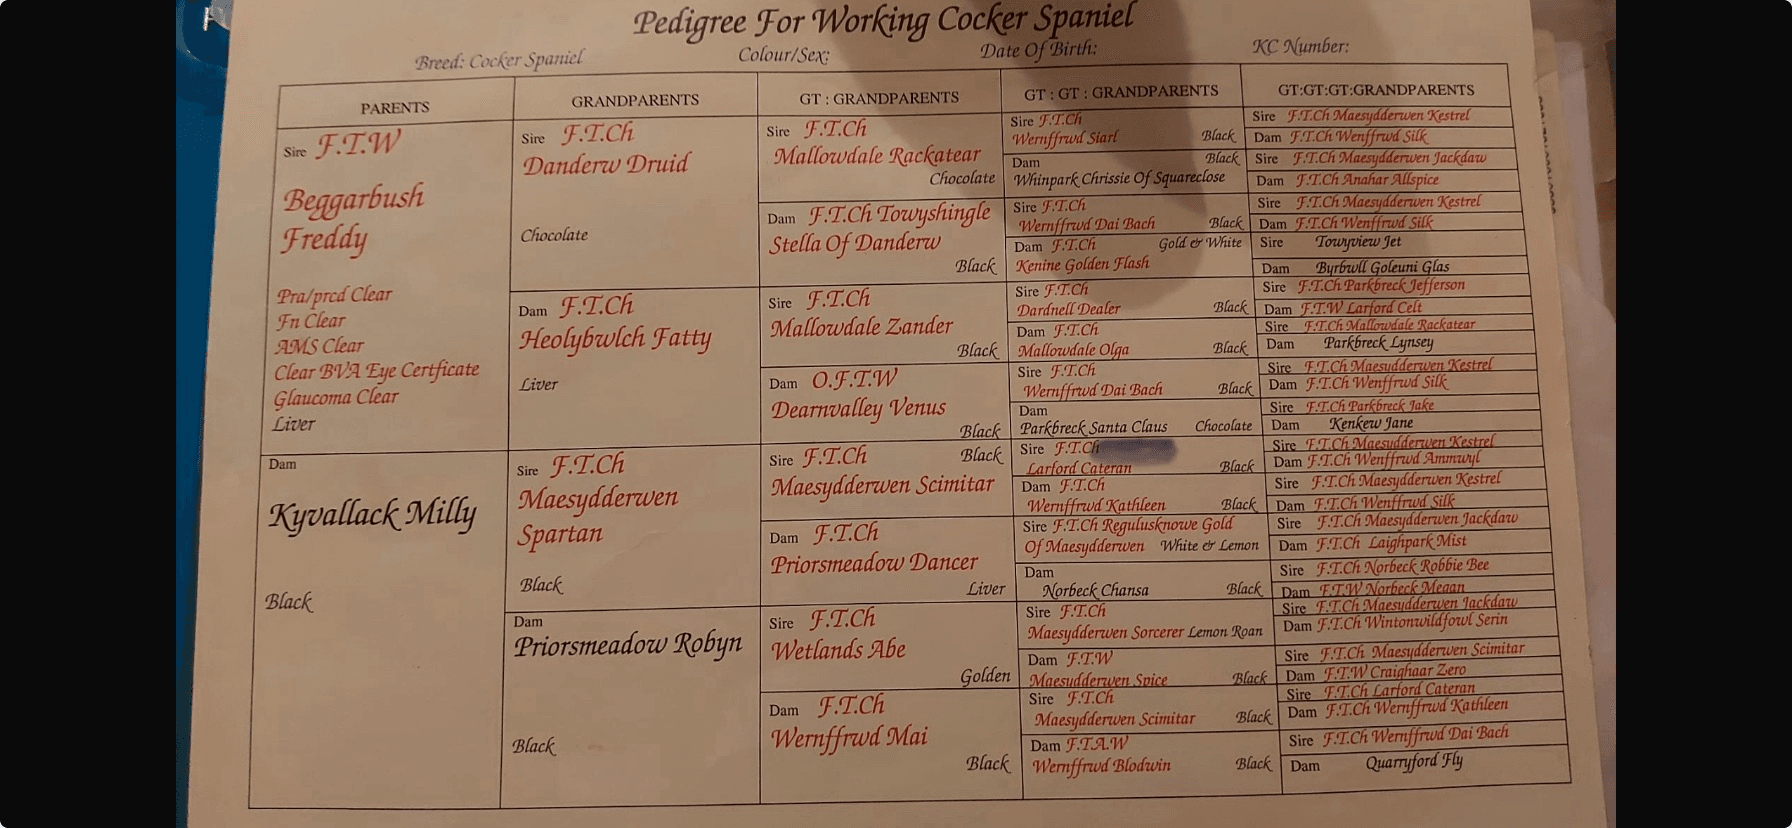 Pedigree For Working Cocker Spaniel
Breed: Cocker Spaniel Colour/Sex: Date Of Birth: KC Number:
PARENTS
Sire F.T.W
Beggarbush
Freddy
Pra/prcd Clear
Fn Clear
AMS Clear
Clear BVA Eye Certficate
Glaucoma Clear
Liver
Dam
Kyvallack Milly
Black
GRANDPARENTS
Sire F.T.Ch
Danderw Druid
Chocolate
Dam F.T.Ch
Heolybwlch Fatty
Liver
Sire F.T.Ch
Maesydderwen
Spartan
Black
Dam
Priorsmeadow Robyn
Black
GT : GRANDPARENTS
Sire F.T.Ch
Mallowdale Rackatear
Chocolate
Dam F.T.Ch Towyshingle
Stella Of Danderw
Black
Sire F.T.Ch
Mallowdale Zander
Black
Dam O.F.T.W
Dearnvalley Venus
Black
Sire F.T.Ch Black
Maesydderwen Scimitar
Dam F.T.Ch
Priorsmeadow Dancer
Liver
Sire F.T.Ch
Wetlands Abe
Golden
Dam F.T.Ch
Wernffrwd Mai
Black
GT : GT : GRANDPARENTS
Sire F.T.Ch
Wernffrwd Siarl Black
Dam Black
Whinpark Chrissie Of Squareclose
Sire F.T.Ch
Wernffrwd Dai Bach Black
Dam F.T.Ch Gold & White
Kenine Golden Flash
Sire F.T.Ch
Dardnell Dealer Black
Dam F.T.Ch
Mallowdale Olga Black
Sire F.T.Ch
Wernffrwd Dai Bach Black
Dam
Parkbreck Santa Claus Chocolate
Sire F.T.Ch
Larford Cateran Black
Dam F.T.Ch
Wernffrwd Kathleen Black
Sire F.T.Ch Regulusknowe Gold
Of Maesydderwen White & Lemon
Dam
Norbeck Chansa Black
Sire F.T.Ch
Maesydderwen Sorcerer Lemon Roan
Dam F.T.W
Maesydderwen Spice Black
Sire F.T.Ch
Maesydderwen Scimitar Black
Dam F.T.A.W
Wernffrwd Blodwin Black
GT:GT:GT:GRANDPARENTS
Sire F.T.Ch Maesydderwen Kestrel
Dam F.T.Ch Wenffrwd Silk
Sire F.T.Ch Maesydderwen Jackdaw
Dam F.T.Ch Anahar Allspice
Sire F.T.Ch Maesydderwen Kestrel
Dam F.T.Ch Wenffrwd Silk
Sire Towyview Jet
Dam Byrbwll Goleuni Glas
Sire F.T.Ch Parkbreck Jefferson
Dam F.T.W Larford Celt
Sire F.T.Ch Mallowdale Rackatear
Dam Parkbreck Lynsey
Sire F.T.Ch Maesydderwen Kestrel
Dam F.T.Ch Wenffrwd Silk
Sire F.T.Ch Parkbreck Jake
Dam Kenkew Jane
Sire F.T.Ch Maesydderwen Kestrel
Dam F.T.Ch Wenffrwd Ammwyl
Sire F.T.Ch Maesydderwen Kestrel
Dam F.T.Ch Wenffrwd Silk
Sire F.T.Ch Maesydderwen Jackdaw
Dam F.T.Ch Laighpark Mist
Sire F.T.Ch Norbeck Robbie Bee
Dam F.T.W Norbeck Megan
Sire F.T.Ch Maesydderwen Jackdaw
Dam F.T.Ch Wintonwildfowl Serin
Sire F.T.Ch Maesydderwen Scimitar
Dam F.T.W Craighaar Zero
Sire F.T.Ch Larford Cateran
Dam F.T.Ch Wernffrwd Kathleen
Sire F.T.Ch Wernffrwd Dai Bach
Dam Quarryford Fly